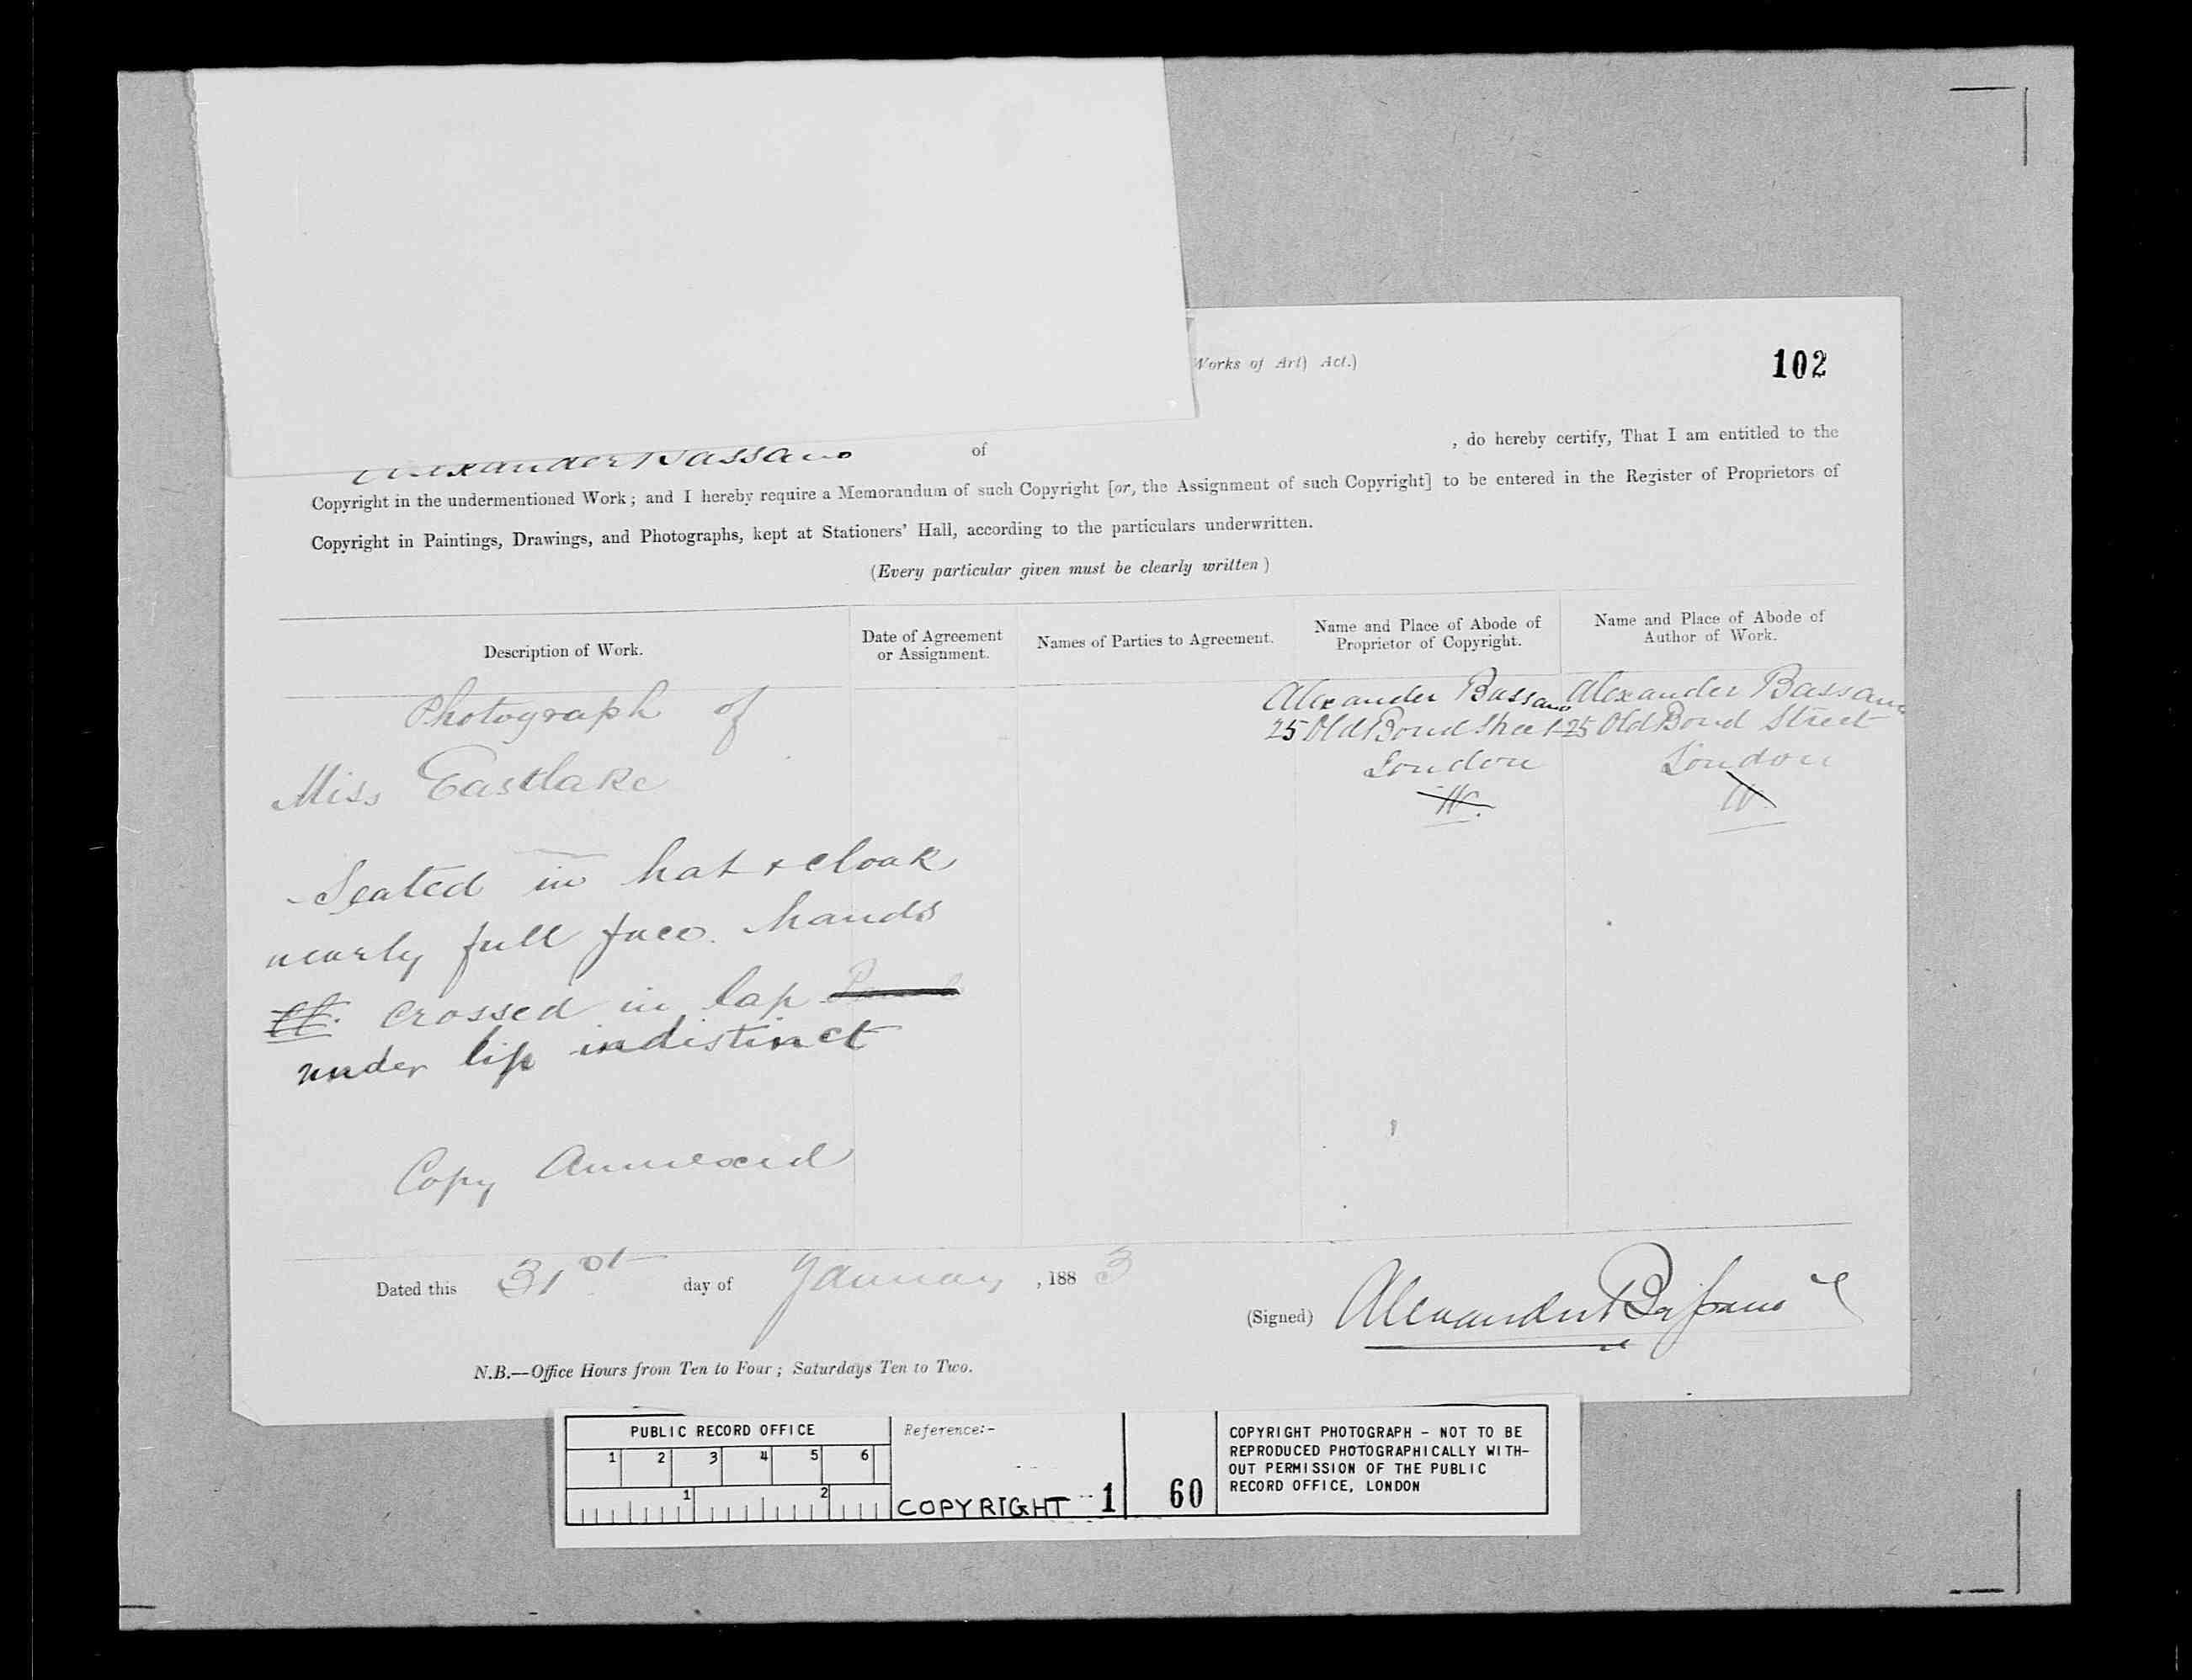 Works of Art) Act.)
102
Alexander Bassano of , do hereby certify, That I am entitled to the
Copyright in the undermentioned Work; and I hereby require a Memorandum of such Copyright [or, the Assignment of such Copyright] to be entered in the Register of Proprietors of
Copyright in Paintings, Drawings, and Photographs, kept at Stationers' Hall, according to the particulars underwritten.
(Every particular given must be clearly written)
Description of Work.
Date of Agreement
or Assignment.
Names of Parties to Agreement.
Name and Place of Abode of
Proprietor of Copyright.
Name and Place of Abode of
Author of Work.
Photograph of
Miss Eastlake
Seated in hat & cloak
nearly full face. hands
crossed in lap
under lip indistinct
Copy Annexed
Alexander Bassano
25 Old Bond Street
London
W.
Alexander Bassano
25 Old Bond Street
London
W
Dated this 31st day of January, 1883
(Signed) Alexander Bassano
N.B.—Office Hours from Ten to Four; Saturdays Ten to Two.
PUBLIC RECORD OFFICE
1 2 3 4 5 6
1 2
Reference:-
COPYRIGHT 1
60
COPYRIGHT PHOTOGRAPH - NOT TO BE
REPRODUCED PHOTOGRAPHICALLY WITH-
OUT PERMISSION OF THE PUBLIC
RECORD OFFICE, LONDON